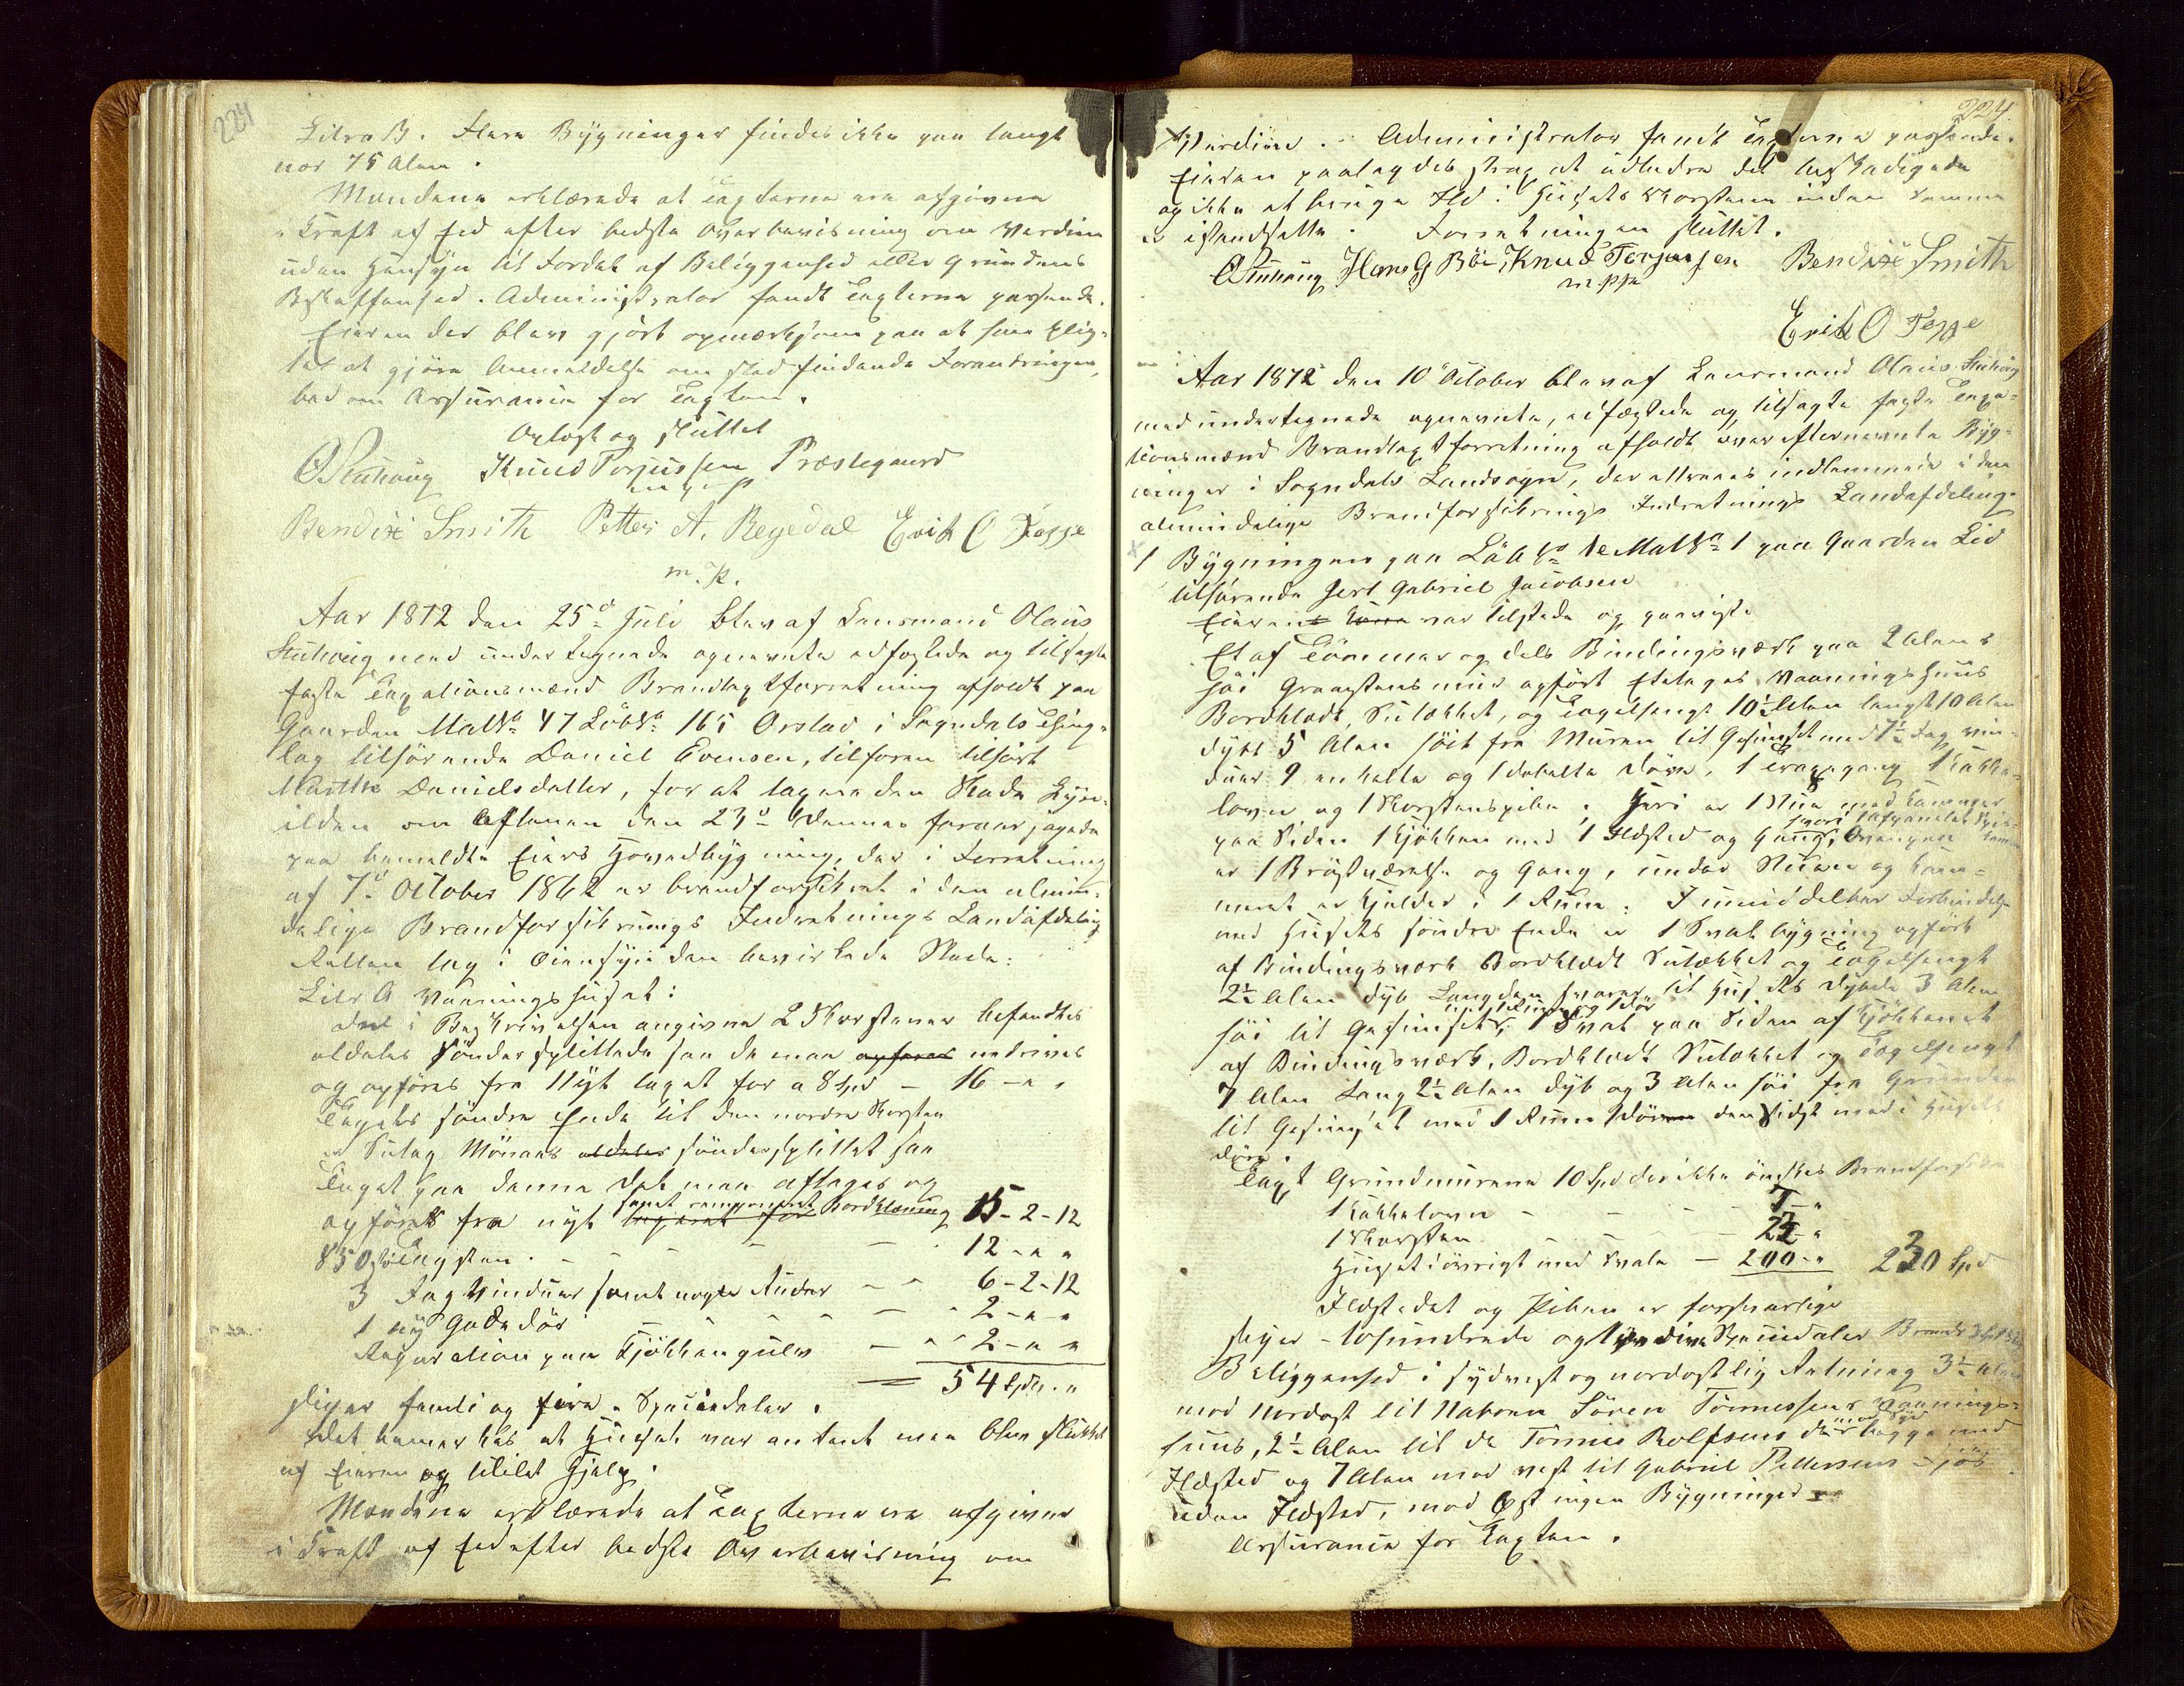 224
Litra B. Flere Bygninger findes ikke paa langt
nær 75 Alen.
Mændene erklærede at Taxterne ere afgivne
i Kraft af Eed efter bedste Overbeviisning om Værdien
uden Hensyn til Fordel af Beliggenhed eller Grundens
Beskaffenhed. Administrator fandt Taxterne passende.
Eieren der blev gjort opmærksom paa at han plig-
tet at gjöre Anmeldelse om stedfindende Forandringer,
bad om Assurance for Taxten.
Oplæst og sluttet
OStuhaug Knud Torjussen Præstegaard
m. p. p.
Bendix Smith Petter A. Regedal Erik O Fosse
m. p.
Aar 1872 den 25d Juli blev af Lensmand Olaus
Stuhaug med undertegnede opnævnte edfæstede og tilsagte
faste Taxationsmænd Brandtaxtforretning afholdt paa
Gaarden Mat No 47 Löb No 165 Orstad i Sogndals Thing-
lag tilhörende Daniel Evensen, tilforn tilhört
Marthe Danielsdatter, for at taxere den Skade Lyn-
ilden om Aftenen den 23d dennes foraarsagede
paa bemeldte Eiers Hovedbygning, der i Forretning
af 7d October 1862 er brandforsikret i den almin-
delige Brandforsikrings Indretnings Landafdeling
Retten tog i Öiensyn den bevirkede Skade:
Litr A Vaaningshuset:
de i Beskrivelsen angivne 2 Skorstener befandtes
aldeles söndersplittede saa de maa opföres nedrives
og opföres fra Nyt taget for a 8 Spd — 16 - " "
Tagets söndre Ende til den nordre Skorsten
er Sutag Mönaas aldeles söndersplittet saa
Taget paa denne Del maa aftages og
opföres fra nyt samt ramponeret Bordklædning 15 - 2 - 12
850 Tagsten — 12 - " "
3 Fag Vinduer samt nogle Ruder — 6 - 2 - 12
1 ny Gadedör — 2 - " "
Reparation paa Kjökkengulv — 2 - " "
= 54 Spdlr. "
siger femti og fire Speciedaler.
Det bemærkes at Huset var antænt men blev slukket
af Eieren og tililet Hjælp.
Mændene erklærede at Taxterne ere afgivne
i Kraft af Eed efter bedste Overbeviisning om
224.
Værdien. Administrator fandt Taxterne passende.
Eieren paalagdes strax at udbedre det beskadigede
og ikke at bruge Ild i Husets Skorstene inden samme
er istandsatte. Forretningen sluttet.
OStuhaug Hans G Böe Knud Torjussen Bendix Smith
m. p. p.
Erik O Fosse
Aar 1872 den 10d October blev af Lensmand Olaus Stuhaug
med undertegnede opnævnte, edfæstede og tilsagte faste Taxa-
tionsmænd Brandtaxtforretning afholdt over efternævnte Byg-
ninger i Sogndals Landsogn, der attraaes indlemmede i den
almindelige Brandforsikrings Indretnings Landafdeling.
1 Bygningen paa Löb No 1e Mat No 1 paa Gaarden Lid
tilhörende Jert Gabriel Jacobsen
Eieren var tilstede og paaviste
Et af Tömmer og dels Bindingsværk paa 2 Alens
höi Graastensmur opfört Etatages Vaaningshuus
Bordklædt, Sutækket, og Tagelhængt 10½ Alen langt 10 Alen
dybt 5 Alen höit fra Muren til Gesimset med 7½ Fag Vin-
duer 9 enkelte og 1 dobbelt Döre, 1 Trappegang 1 Kakke-
lovn og 1 Skorstenspibe. Heri er 1 Stue med Kammer
paa Siden 1 Kjökken med 1 Ildsted og Gang, Ovenpaa
er 1 Bröstværelse og Gang, under Stuen og Kam-
meret er Kjelder i 1 Rum. I umiddelbar Forbindelse
med Husets söndre Ende er 1 Sval bygning opfört
af Bindingsværk Bordklædt Sutækket og Tagelhængt
2½ Alen dyb Længden svarer til Husets Dybde 3 Alen
höi til Gesimset, 1 Sval paa Siden af Kjökkenet
af Bindingsværk, Bordklædt Sutækket og Tagelhængt
7 Alen lang 2½ Alen dyb og 3 Alen höi fra Grunden
til Gesimset med 1 Rum 1 Dör den sidst med i Husets
Döre.
Taxt Grundmurene 10 Spd der ikke önskes Brandforsikret
1 Kakkelovn — "
1 Skorsten — "
Huset iövrigt med Svale — 200 - " 230 Spd
Ildstedet og Piben er forsvarlige
siger - tohundrede og tredive Speciedaler
Beliggenhed i sydvest og nordostlig Retning 3½ Alen
mod Nordost til Naboen Sören Tönnessens Vaanings-
huus, 2½ Alen til de Tönnes Rolfsens
Ildsted og 7 Alen mod vest til Gabriel Pettersens
uden Ildsted, mod Öst ingen Bygninger
Assurance for Taxten.